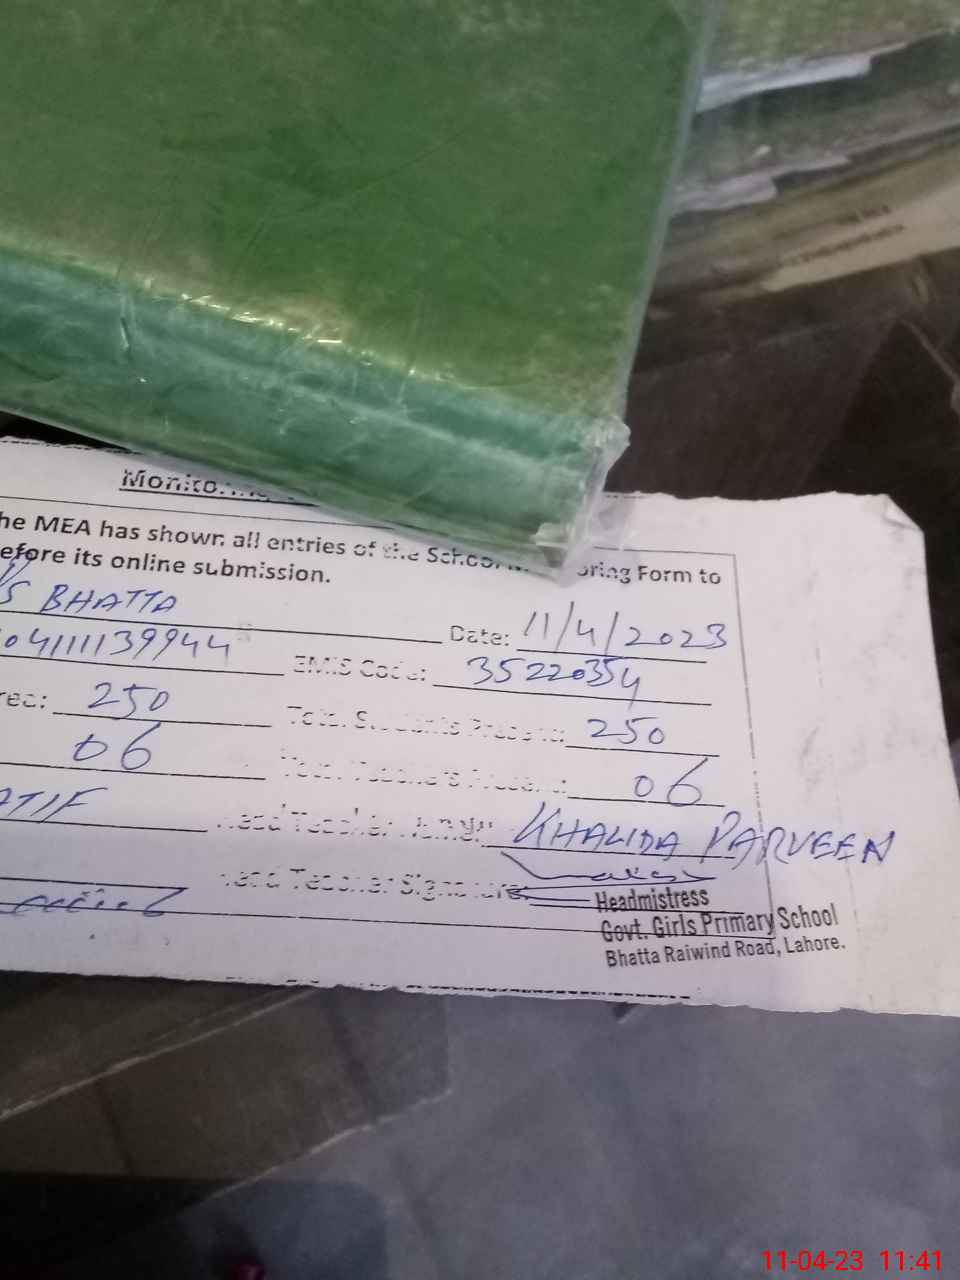 he MEA has shown all entries of the School oring Form to
efore its online submission.
S BHATTA Date: 11/4/2023
04111139944 EMIS Code: 35220354
red: 250 Total Students Present: 250
06 Total Teachers Present: 06
ATIF Head Teacher Name: KHALIDA PARVEEN
Head Teacher Signature:
Headmistress
Govt. Girls Primary School
Bhatta Raiwind Road, Lahore.
11-04-23 11:41